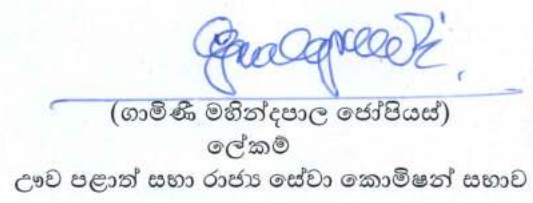 (ගාමිණී මහින්දපාල ජෝපියස්)
ලේකම්
ඌව පළාත් සභා රාජ්‍ය සේවා කොමිෂන් සභාව